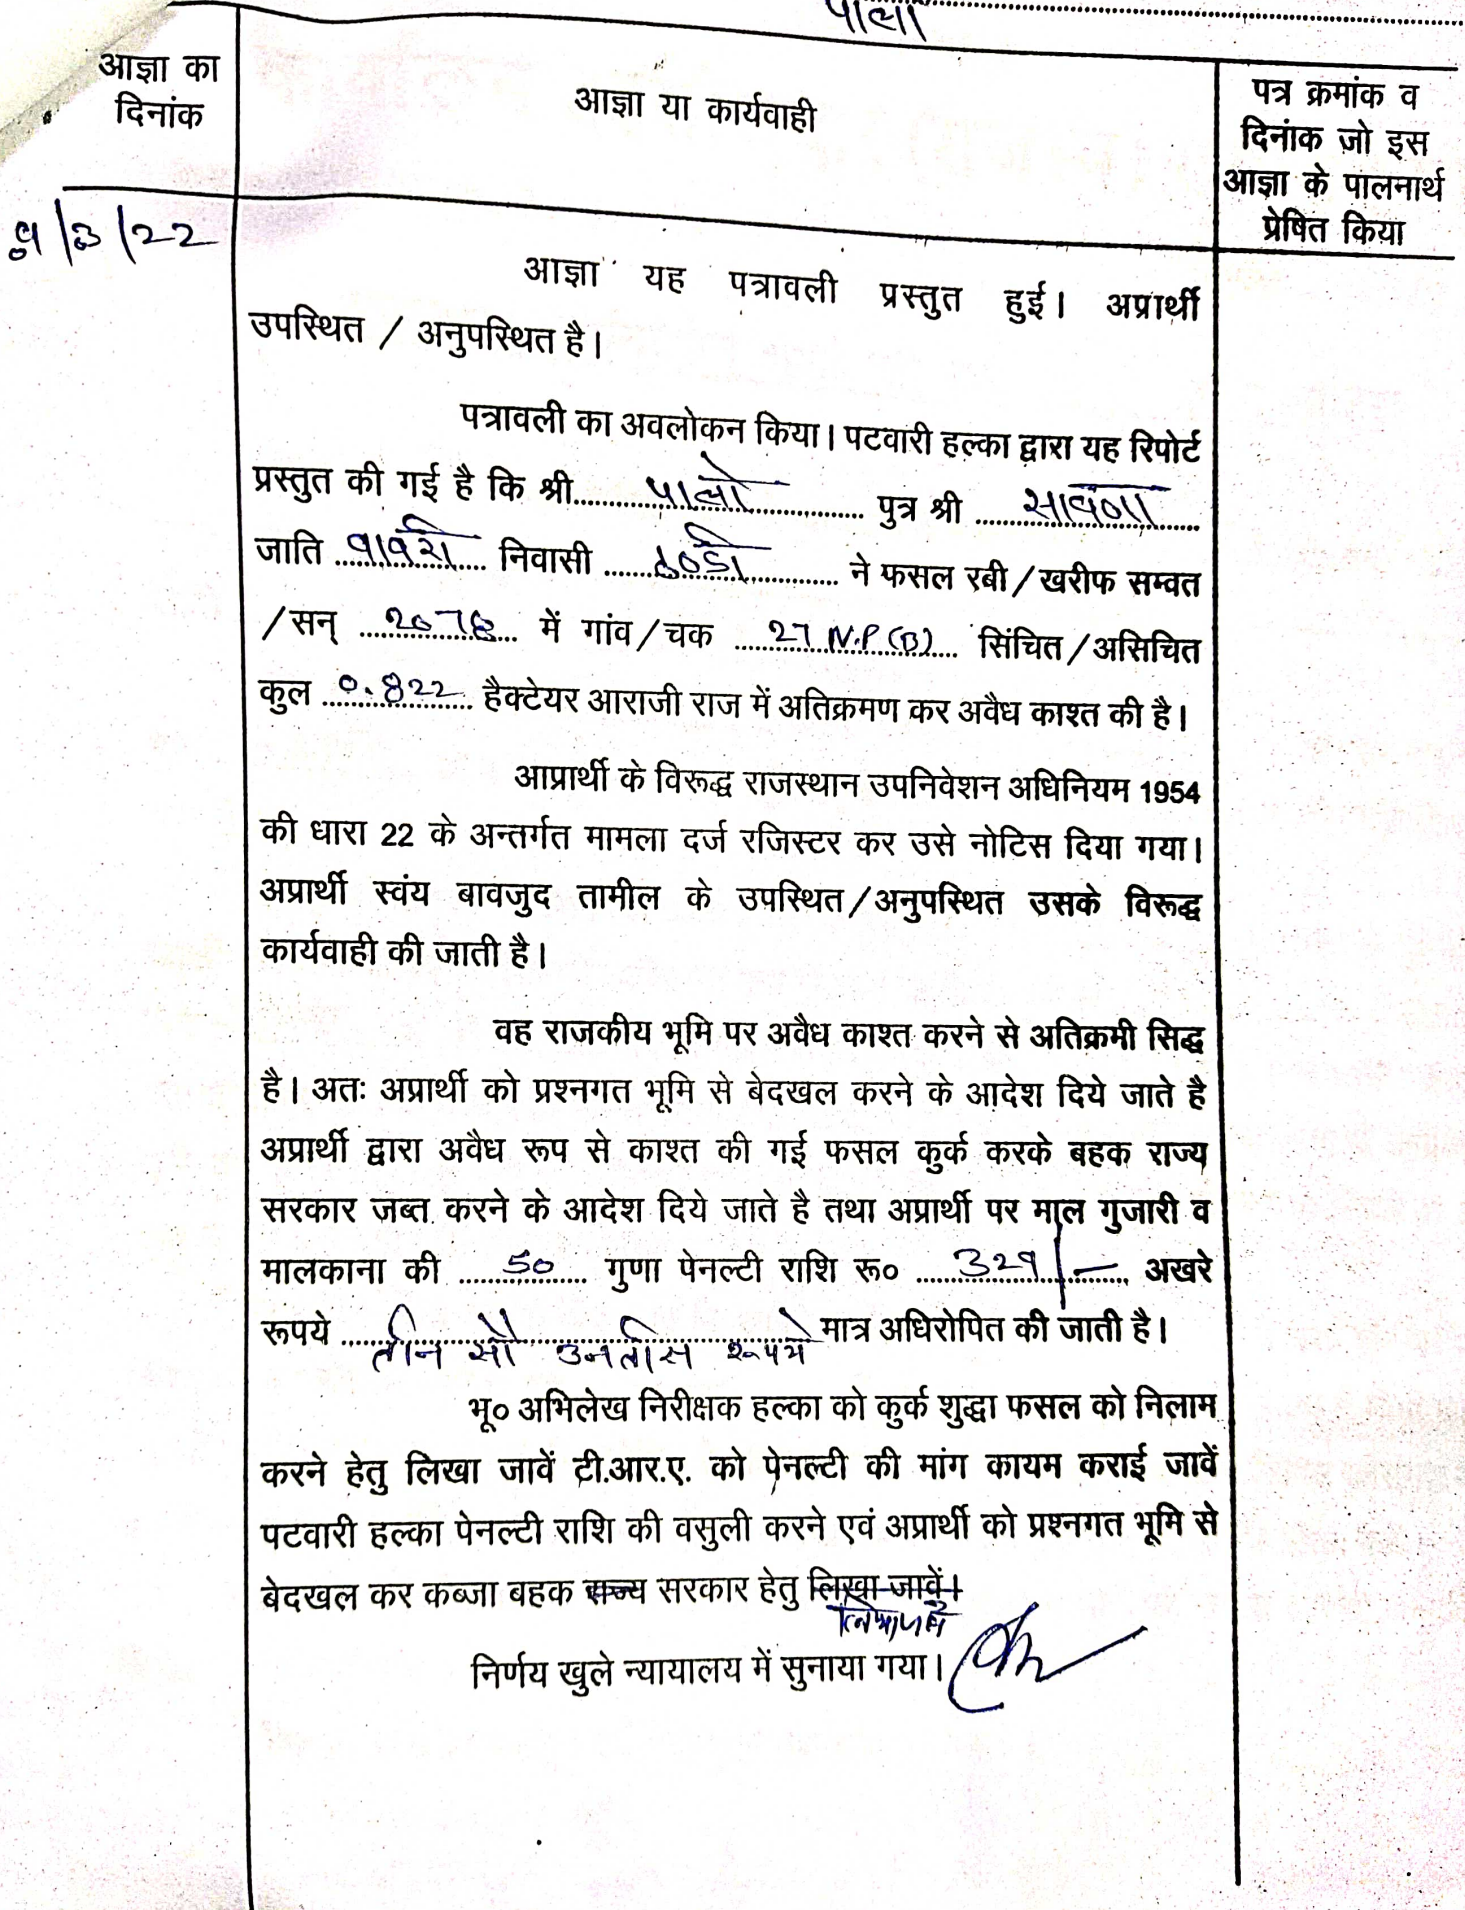 पाला
आज्ञा का
दिनांक
आज्ञा या कार्यवाही
पत्र क्रमांक व
दिनांक जो इस
आज्ञा के पालनार्थ
प्रेषित किया
/3/22
आज्ञा यह पत्रावली प्रस्तुत हुई। अप्रार्थी
उपस्थित / अनुपस्थित है।
पत्रावली का अवलोकन किया। पटवारी हल्का द्वारा यह रिपोर्ट
प्रस्तुत की गई है कि श्री पालो पुत्र श्री सावणा
जाति बावरी निवासी ठण्डी ने फसल रबी/खरीफ सम्वत
/सन् 2078 में गांव/चक 27 N.P (B) सिंचित/असिचित
कुल 0.822 हैक्टेयर आराजी राज में अतिक्रमण कर अवैध काश्त की है।
आप्रार्थी के विरूद्ध राजस्थान उपनिवेशन अधिनियम 1954
की धारा 22 के अन्तर्गत मामला दर्ज रजिस्टर कर उसे नोटिस दिया गया।
अप्रार्थी स्वंय बावजुद तामील के उपस्थित/अनुपस्थित उसके विरूद्ध
कार्यवाही की जाती है।
वह राजकीय भूमि पर अवैध काश्त करने से अतिक्रमी सिद्ध
है। अतः अप्रार्थी को प्रश्नगत भूमि से बेदखल करने के आदेश दिये जाते है
अप्रार्थी द्वारा अवैध रूप से काश्त की गई फसल कुर्क करके बहक राज्य
सरकार जब्त करने के आदेश दिये जाते है तथा अप्रार्थी पर माल गुजारी व
मालकाना की 50 गुणा पेनल्टी राशि रू० 329/- अखरे
रूपये तीन सौ उनतीस रूपये मात्र अधिरोपित की जाती है।
भू० अभिलेख निरीक्षक हल्का को कुर्क शुद्धा फसल को निलाम
करने हेतु लिखा जावें टी.आर.ए. को पेनल्टी की मांग कायम कराई जावें
पटवारी हल्का पेनल्टी राशि की वसुली करने एवं अप्रार्थी को प्रश्नगत भूमि से
बेदखल कर कब्जा बहक राज्य सरकार हेतु लिखा जावें।
निर्णय खुले न्यायालय में सुनाया गया।